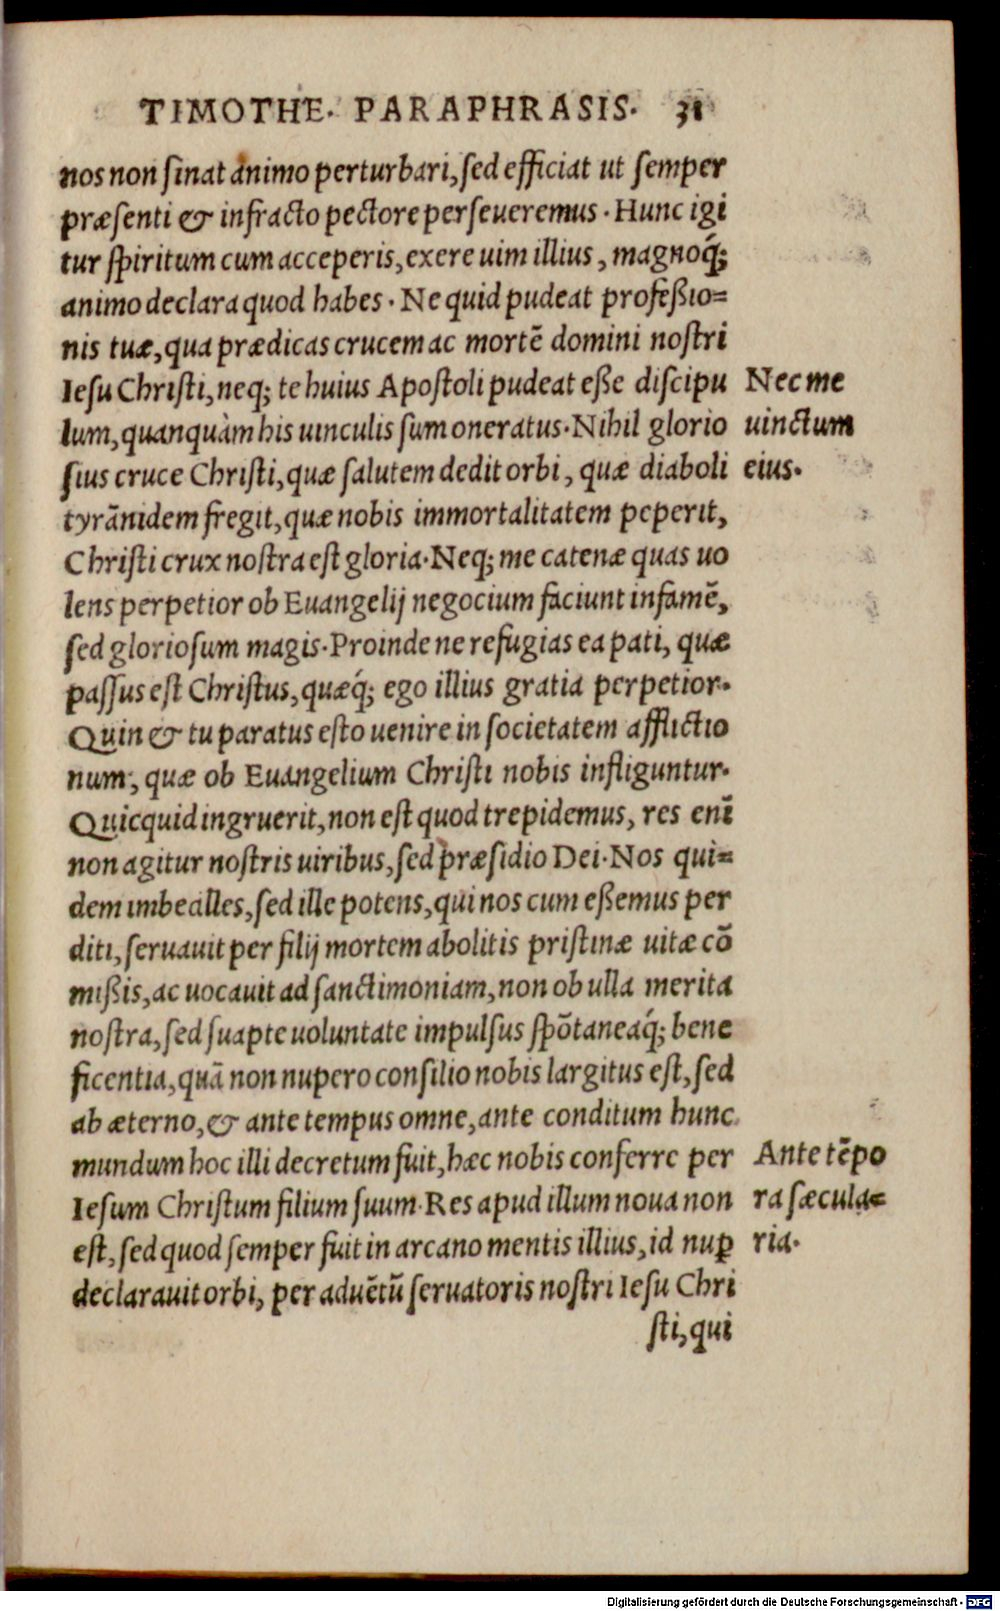 TIMOTHE. PARAPHRASIS. 31
nos non sinat animo perturbari, sed efficiat ut semper
præsenti & infracto pectore perseueremus. Hunc igi
tur spiritum cum acceperis, exere uim illius, magnoq́;
animo declara quod habes. Ne quid pudeat profeßio=
nis tuæ, qua prædicas crucem ac mortē domini nostri
Iesu Christi, neq; te huius Apostoli pudeat eße discipu
lum, quanquàm his uinculis sum oneratus. Nihil glorio
sius cruce Christi, quæ salutem dedit orbi, quæ diaboli
tyrānidem fregit, quæ nobis immortalitatem peperit,
Christi crux nostra est gloria. Neq; me catenæ quas uo
lens perpetior ob Euangelij negocium faciunt infamē,
sed gloriosum magis. Proinde ne refugias ea pati, quæ
passus est Christus, quæq́; ego illius gratia perpetior.
Quin & tu paratus esto uenire in societatem afflictio
num, quæ ob Euangelium Christi nobis infliguntur.
Quicquid ingruerit, non est quod trepidemus, res enī
non agitur nostris uiribus, sed præsidio Dei. Nos qui=
dem imbecilles, sed ille potens, qui nos cum eßemus per
diti, seruauit per filij mortem abolitis pristinæ uitæ cō
mißis, ac uocauit ad sanctimoniam, non ob ulla merita
nostra, sed suapte uoluntate impulsus spōtaneaq́; bene
ficentia, quā non nupero consilio nobis largitus est, sed
ab æterno, & ante tempus omne, ante conditum hunc
mundum hoc illi decretum fuit, hæc nobis conferre per
Iesum Christum filium suum. Res apud illum noua non
est, sed quod semper fuit in arcano mentis illius, id nuꝑ
declarauit orbi, per aduētū seruatoris nostri Iesu Chri
sti, qui
Nec me
uinctum
eius.
Ante tēpo
ra sæcula=
ria.
Digitalisierung gefördert durch die Deutsche Forschungsgemeinschaft - DFG